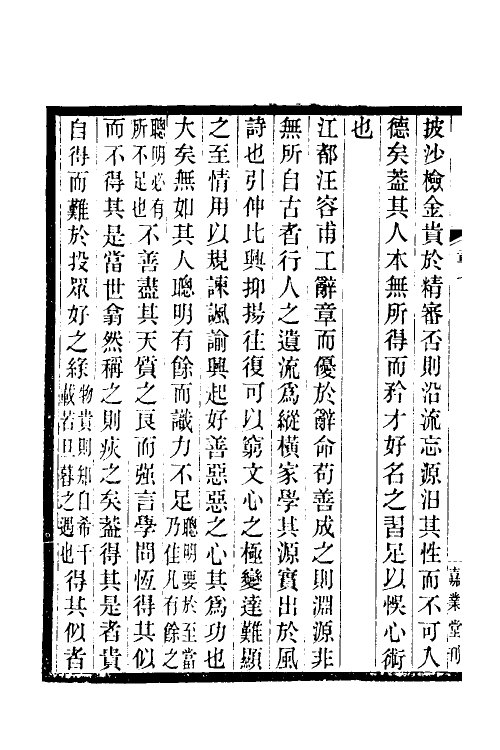 披沙檢金貴於精審否則沿流忘源汨其性而不可入
德矣葢其人本無所得而矜才好名之習足以悞心術
也
江都汪容甫工辭章而優於辭命苟善成之則淵源非
無所自古者行人之遺流爲縱橫家學其源實出於風
詩也引伸比興抑揚往復可以窮文心之極變達難顯
之至情用以規諫諷諭興起好善惡惡之心其爲功也
大矣無如其人聰明有餘而識力不足聰明要於至當乃佳凡有餘之
聰明必有所不足也不善盡其天質之良而強言學問恆得其似
而不得其是當世翕然稱之則疢之矣葢得其是者貴
自得而難於投眾好之緣物貴則知自希千載若旦暮之遇也得其似者
嘉業堂刊